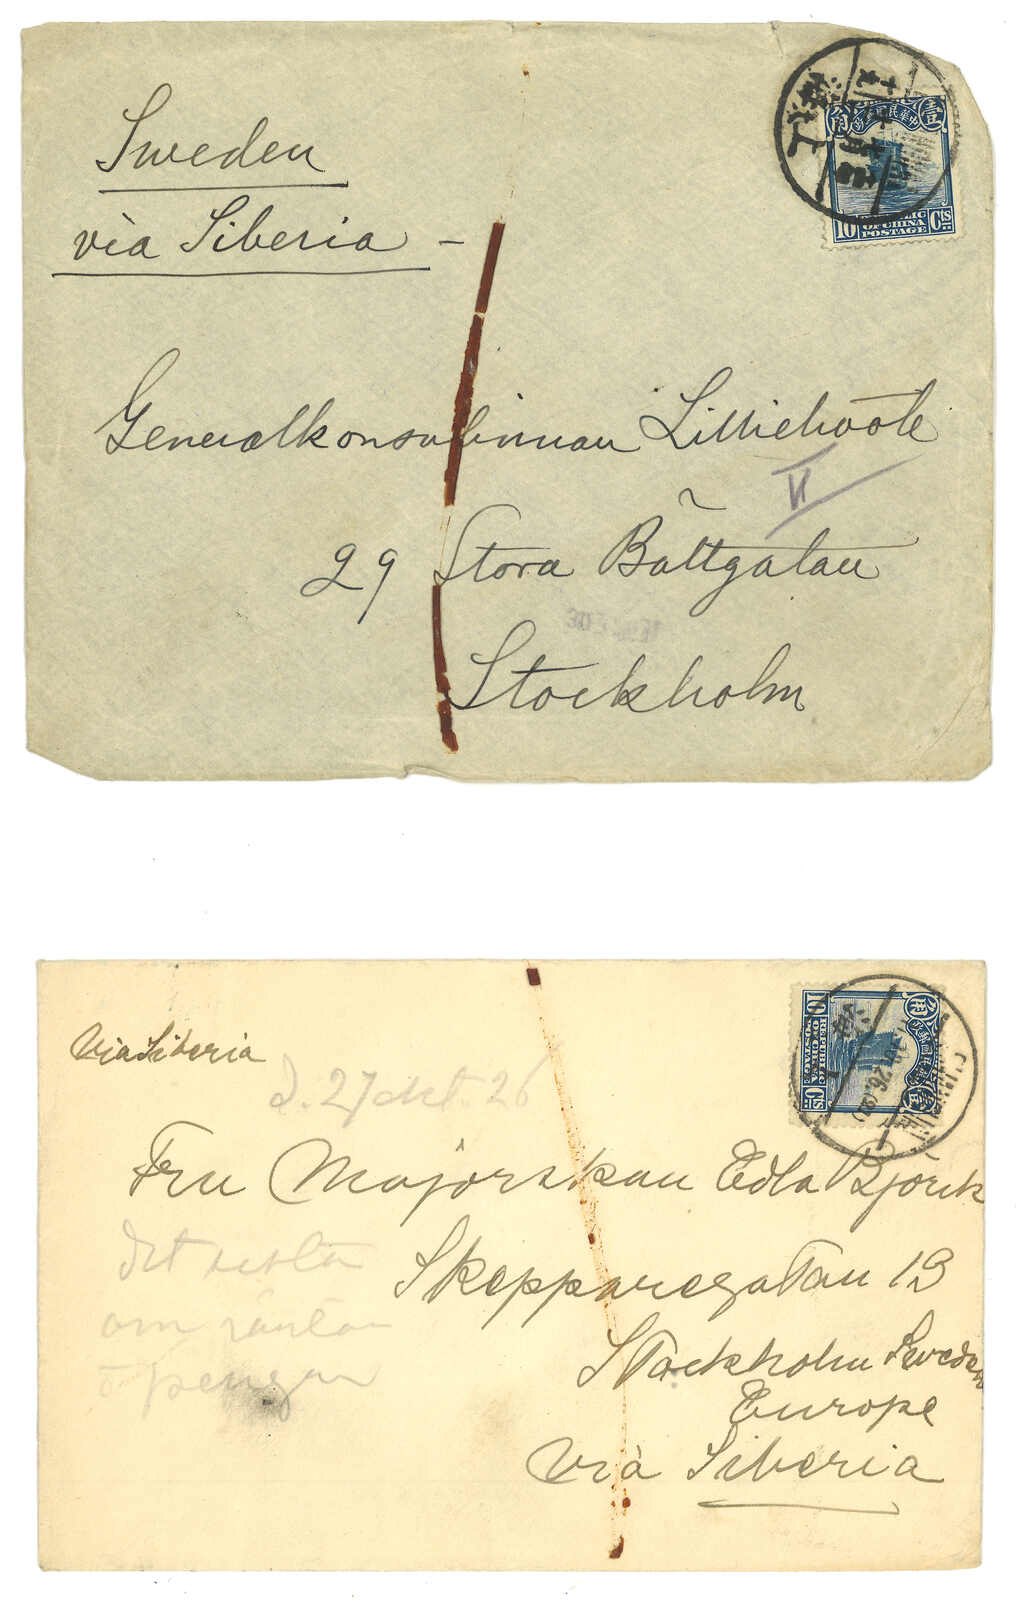 Sweden
via Siberia -
中華民國郵政
壹
角
10 Cts
REPUBLIC
OF CHINA
POSTAGE
Generalkonsulinnan Lilliehöök
II
29 Stora Båttgatan
Stockholm
Via Siberia
d. 27 okt. 26
中華民國郵政
角
10 Cts
REPUBLIC
OF CHINA
POSTAGE
26
Fru Majorskan Edla Björck
det
om räntan
o pengar
Skepparegatan 13
Stockholm Sweden
Europe
Via Siberia